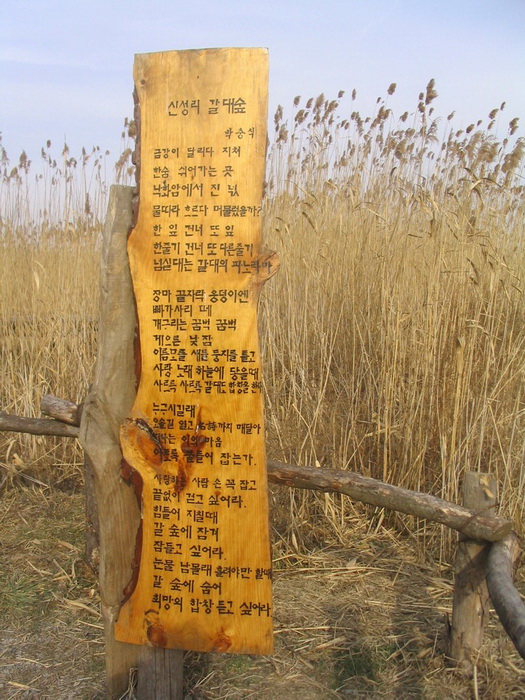 신성리 갈대숲
박송식
금강이 달리다 지쳐
한숨 쉬어가는 곳
낙화암에서 진 넋
물따라 흐르다 머물렀을까?
한 잎 건너 또 잎
한줄기 건너 또다른줄기
넘실대는 갈대의 파노라마
장마 끝자락 웅덩이엔
빠가사리 떼
개구리는 꿈벅 꿈벅
게으른 낮 잠
이름모를 새는 둥지를 틀고
사랑 노래 하늘에 닿을때
사르륵 사르륵 갈대도 합창을 한다
누구시길래
오솔길 열고 까지 매달아
마음
붙들어 잡는가.
사람 손 꼭 잡고
끝없이 걷고 싶어라.
힘들어 지칠때
갈 숲에 잠겨
잠들고 싶어라.
눈물 남몰래 흘려야만 할때
갈 숲에 숨어
희망의 합창 듣고 싶어라